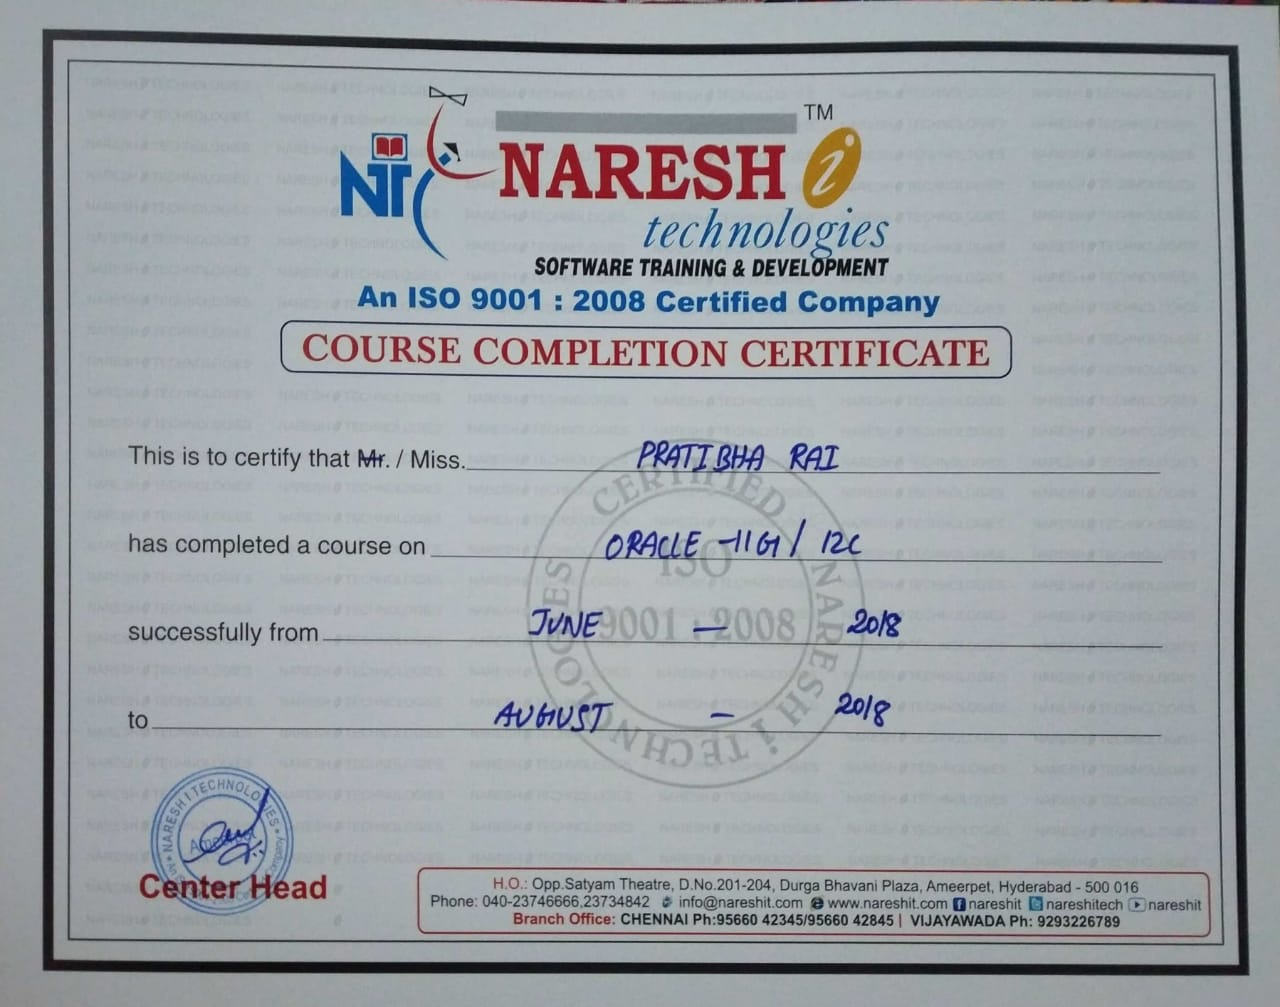 TM
NTC NARESH i
technologies
SOFTWARE TRAINING & DEVELOPMENT
An ISO 9001 : 2008 Certified Company
COURSE COMPLETION CERTIFICATE
This is to certify that Mr. / Miss. PRATIBHA RAI
has completed a course on ORACLE -11G / 12C
successfully from JUNE - 2018
to AUGUST - 2018
CERTIFIED NARESH i TECHNOLOGIES
ISO
9001 : 2008
NARESH I TECHNOLOGIES
Center Head
H.O.: Opp.Satyam Theatre, D.No.201-204, Durga Bhavani Plaza, Ameerpet, Hyderabad - 500 016
Phone: 040-23746666,23734842 info@nareshit.com www.nareshit.com nareshit nareshitech nareshit
Branch Office: CHENNAI Ph:95660 42345/95660 42845 | VIJAYAWADA Ph: 9293226789